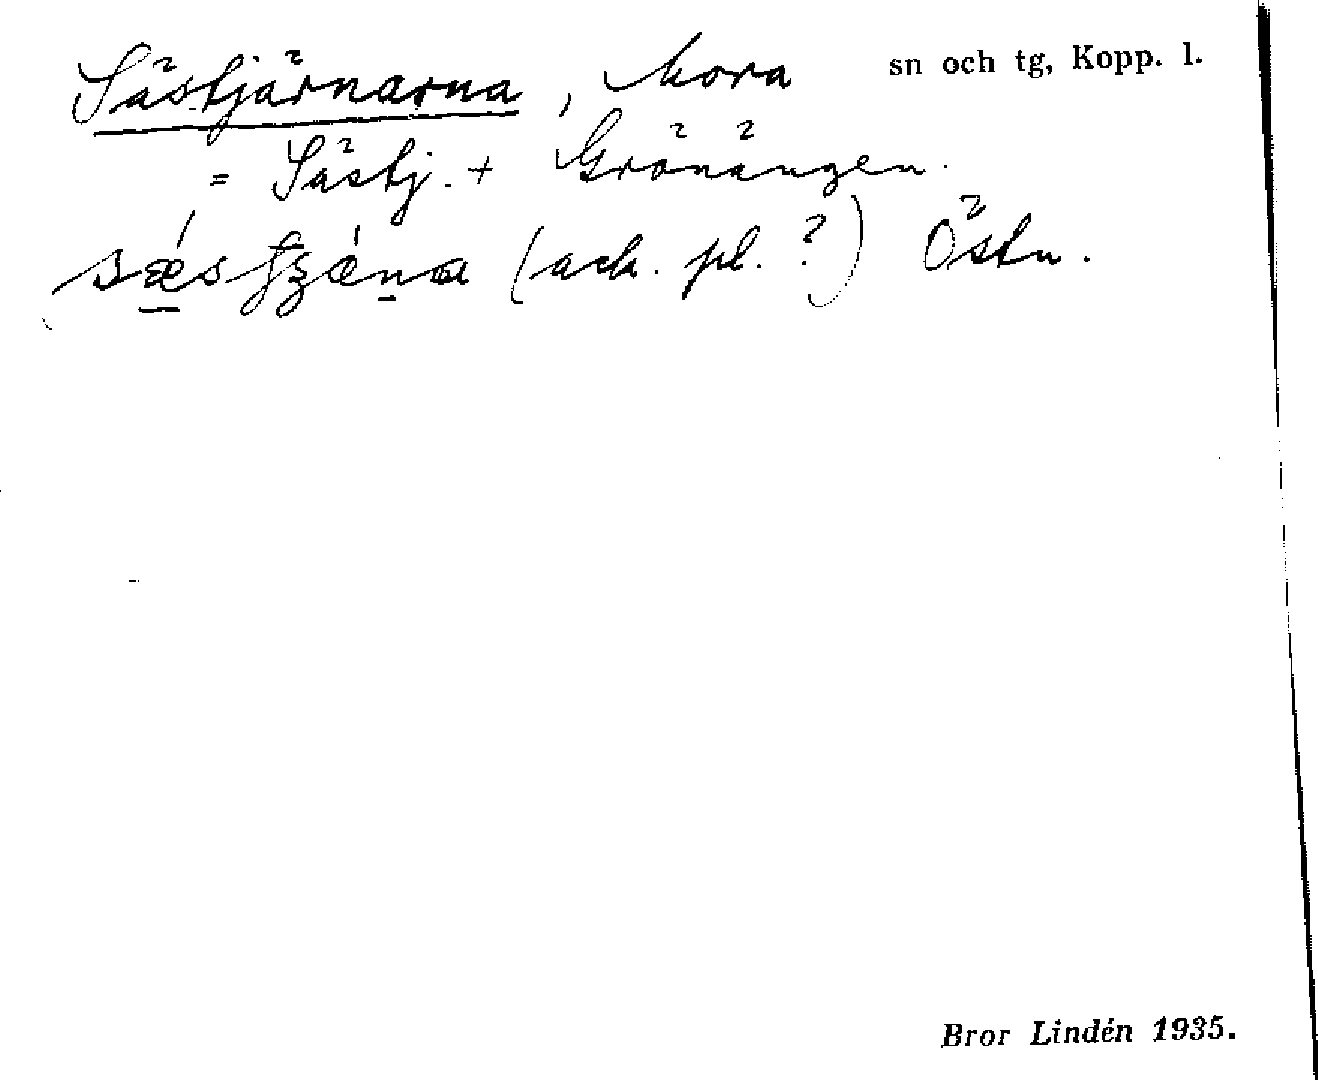 Sästjärnarna, Mora sn och tg, Kopp. l.
= Sästj. + Grönängen.
(ack. pl.?) Östn.
Bror Lindén 1935.